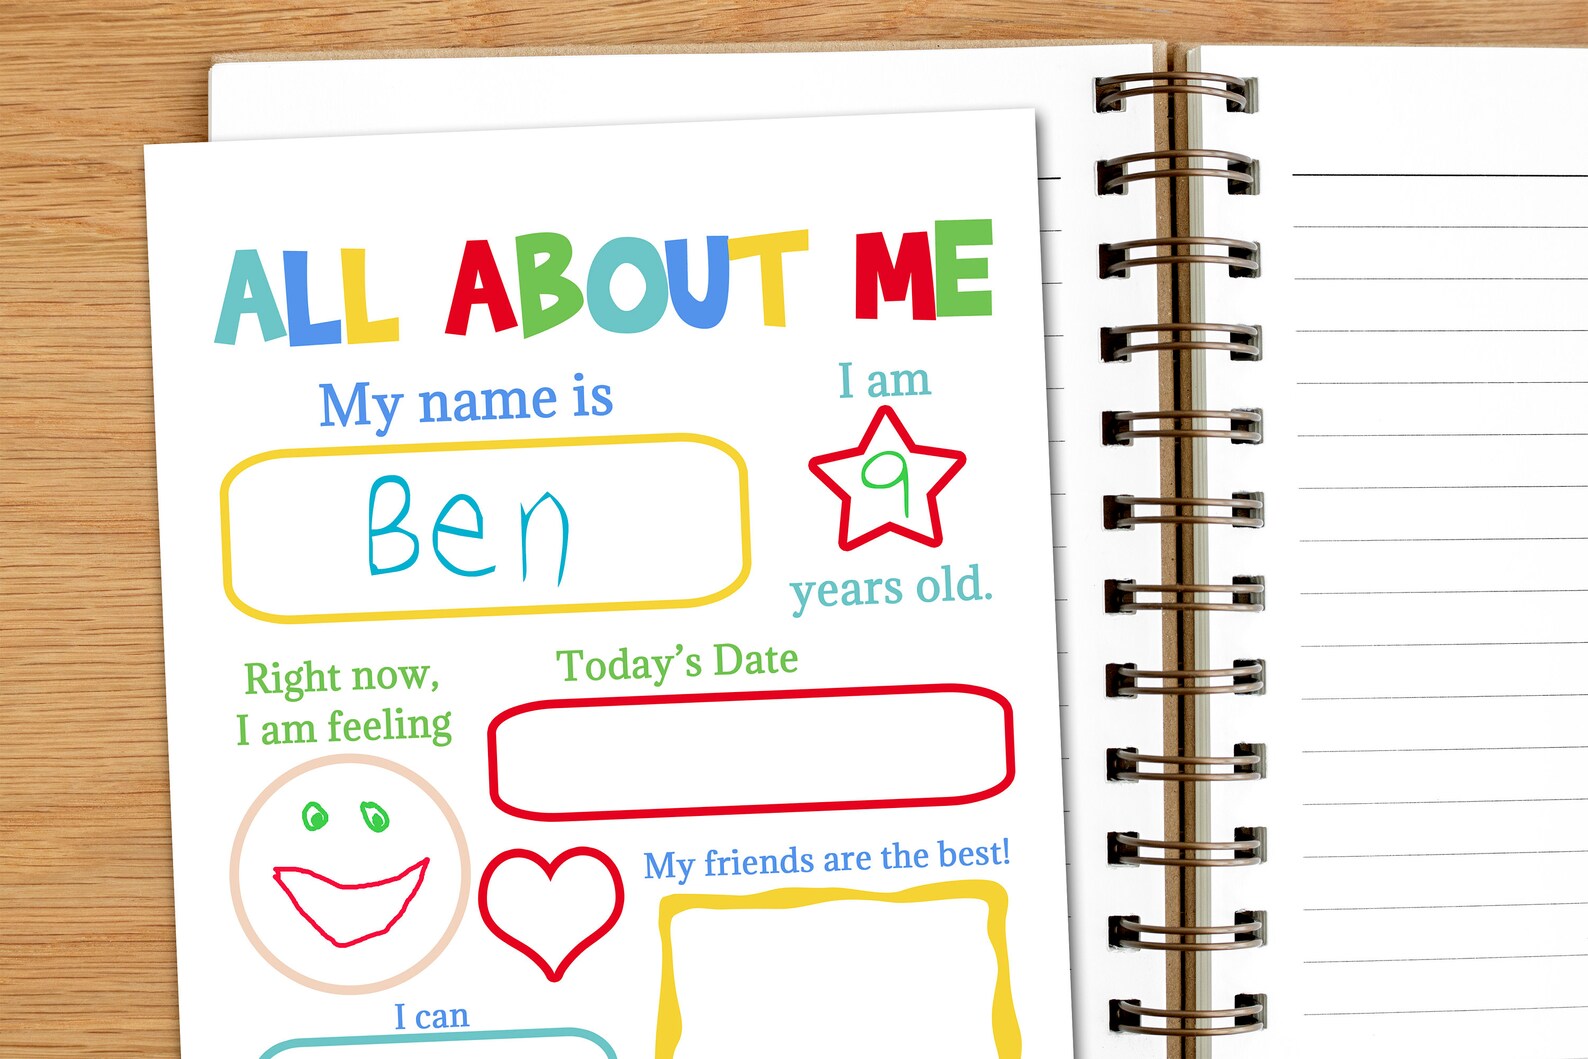 ALL ABOUT ME
My name is
Ben
I am
9
years old.
Right now,
I am feeling
Today's Date
My friends are the best!
I can